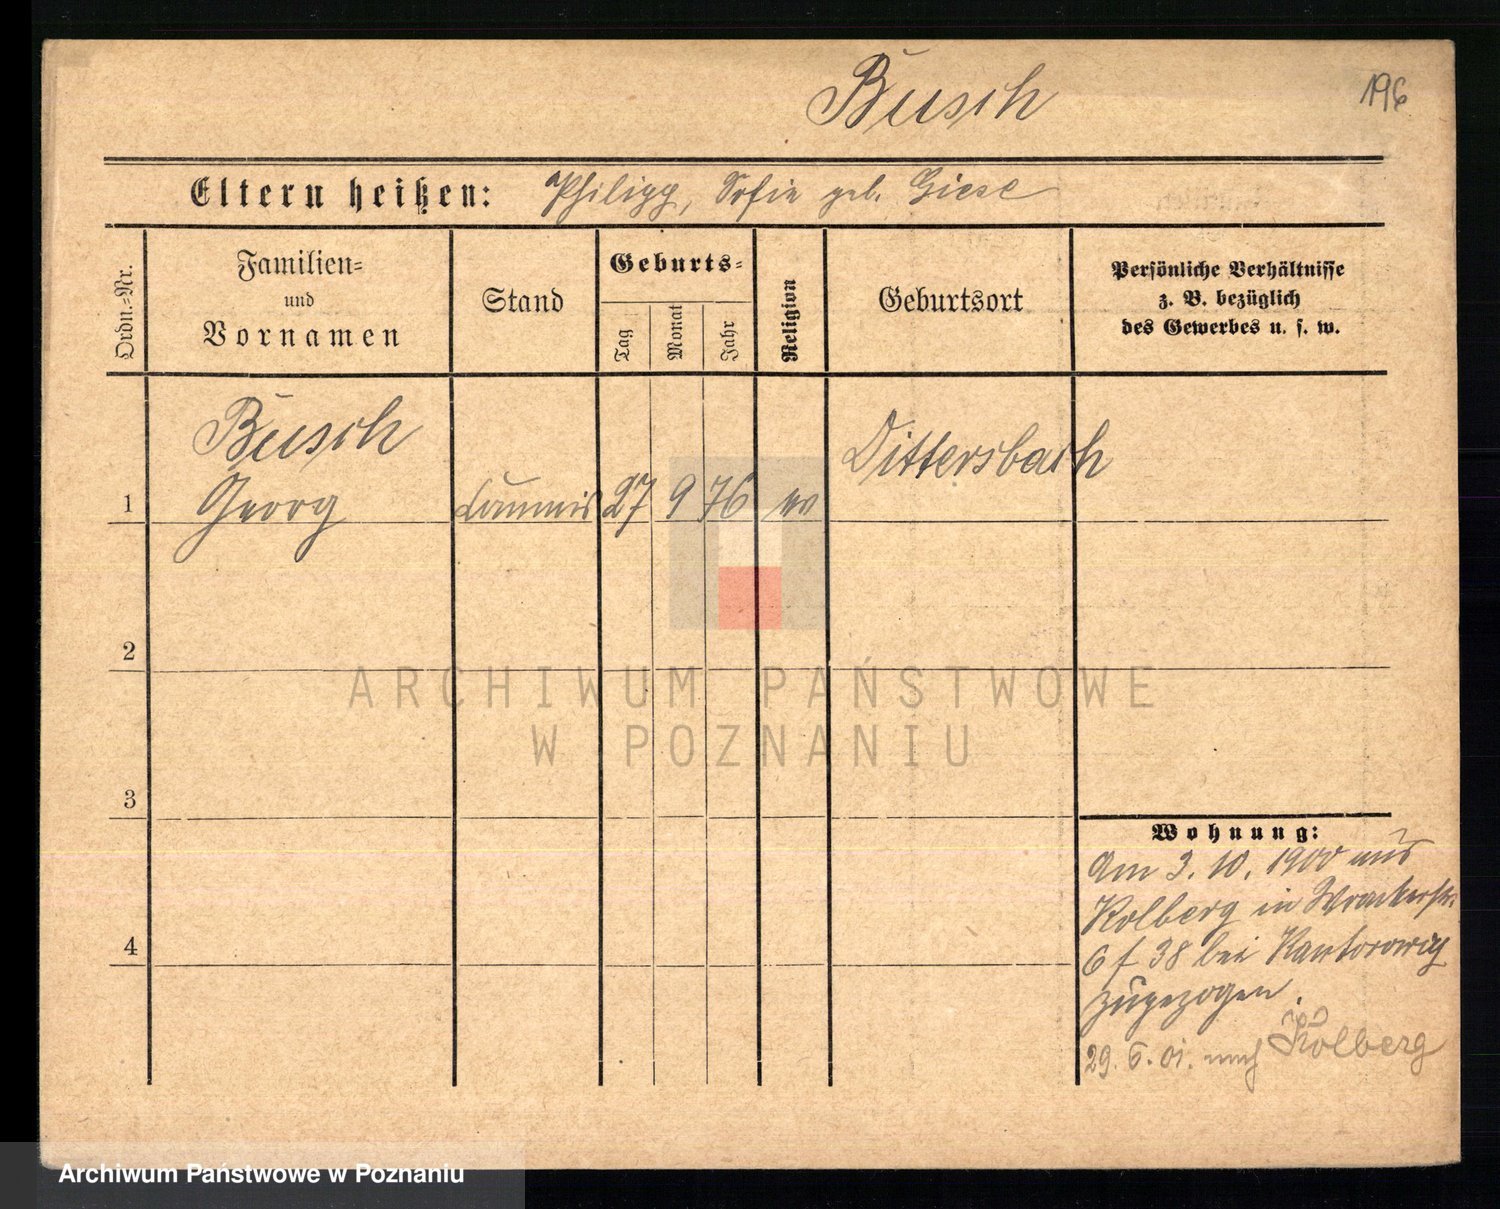 Busch
196
Eltern heißen: Philipp, Sofie geb. Giese
Ordn.=Nr.
Familien=
und
Vornamen
Stand
Geburts=
Tag
Monat
Jahr
Religion
Geburtsort
Persönliche Verhältnisse
z. B. bezüglich
des Gewerbes u. s. w.
Busch
Dittersbach
1 Georg 27 9 76 ev
2
ARCHIWUM PAŃSTWOWE
W POZNANIU
3
Wohnung:
Am 3. 10. 1900 aus
Kolberg in
4
6 f 38 bei Kantorowicz
zugezogen.
29. 6. 01. nach Kolberg
Archiwum Państwowe w Poznaniu